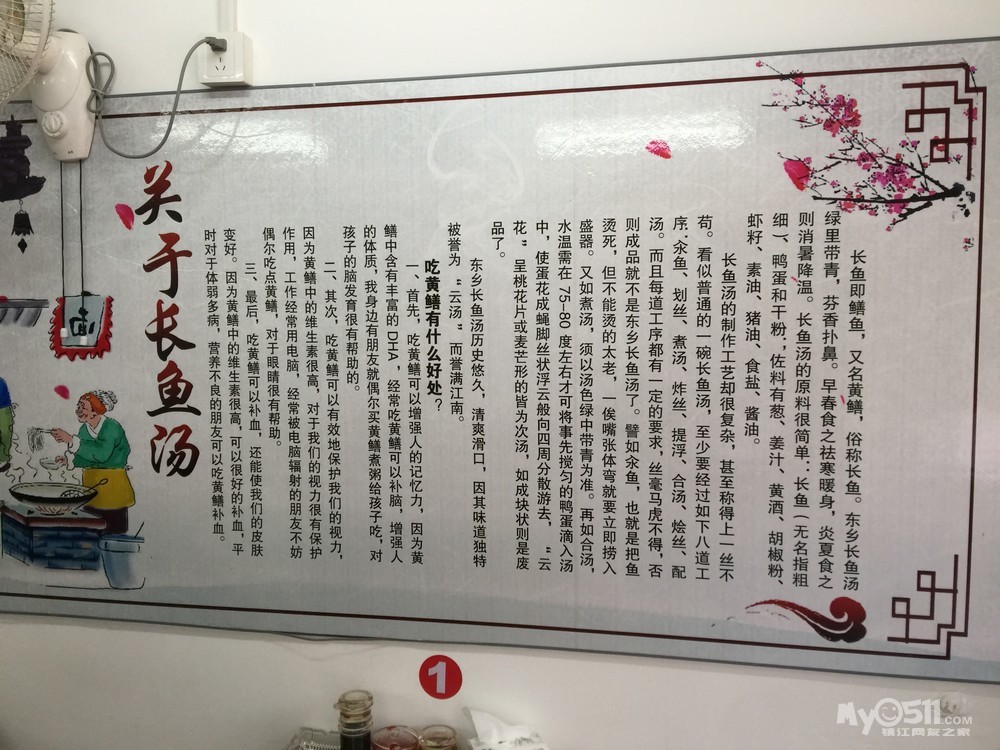 关于长鱼汤
长鱼即鳝鱼，又名黄鳝，俗称长鱼。东乡长鱼汤
绿里带青，芬香扑鼻。早春食之祛寒暖身，炎夏食之
则消暑降温。长鱼汤的原料很简单：长鱼（无名指粗
细）、鸭蛋和干粉；佐料有葱、姜汁、黄酒、胡椒粉、
虾籽、素油、猪油、食盐、酱油。
长鱼汤的制作工艺却很复杂，甚至称得上一丝不
苟。看似普通的一碗长鱼汤，至少要经过如下八道工
序：汆鱼、划丝、煮汤、炸丝、提浮、合汤、烩丝、配
汤。而且每道工序都有一定的要求，丝毫马虎不得，否
则成品就不是东乡长鱼汤了。譬如汆鱼，也就是把鱼
烫死，但不能烫的太老，一俟嘴张体弯就要立即捞入
盛器。又如煮汤，须以汤色绿中带青为准。再如合汤，
水温需在 75—80 度左右才可将事先搅匀的鸭蛋滴入汤
中，使蛋花成蝇脚丝状浮云般向四周分散游去，“云
花”呈桃花片或麦芒形的皆为次汤，如成块状则是废
品了。
东乡长鱼汤历史悠久，清爽滑口，因其味道独特
被誉为“云汤”而誉满江南。
吃黄鳝有什么好处？
一、首先，吃黄鳝可以增强人的记忆力，因为黄
鳝中含有丰富的 DHA，经常吃黄鳝可以补脑，增强人
的体质，我身边有朋友就偶尔买黄鳝煮粥给孩子吃，对
孩子的脑发育很有帮助的。
二、其次，吃黄鳝可以有效地保护我们的视力，
因为黄鳝中的维生素很高，对于我们的视力很有保护
作用，工作经常用电脑，经常被电脑辐射的朋友不妨
偶尔吃点黄鳝，对于眼睛很有帮助。
三、最后，吃黄鳝可以补血，还能使我们的皮肤
变好。因为黄鳝中的维生素很高，可以很好的补血，平
时对于体弱多病，营养不良的朋友可以吃黄鳝补血。
面
1
My0511.COM
镇江网友之家